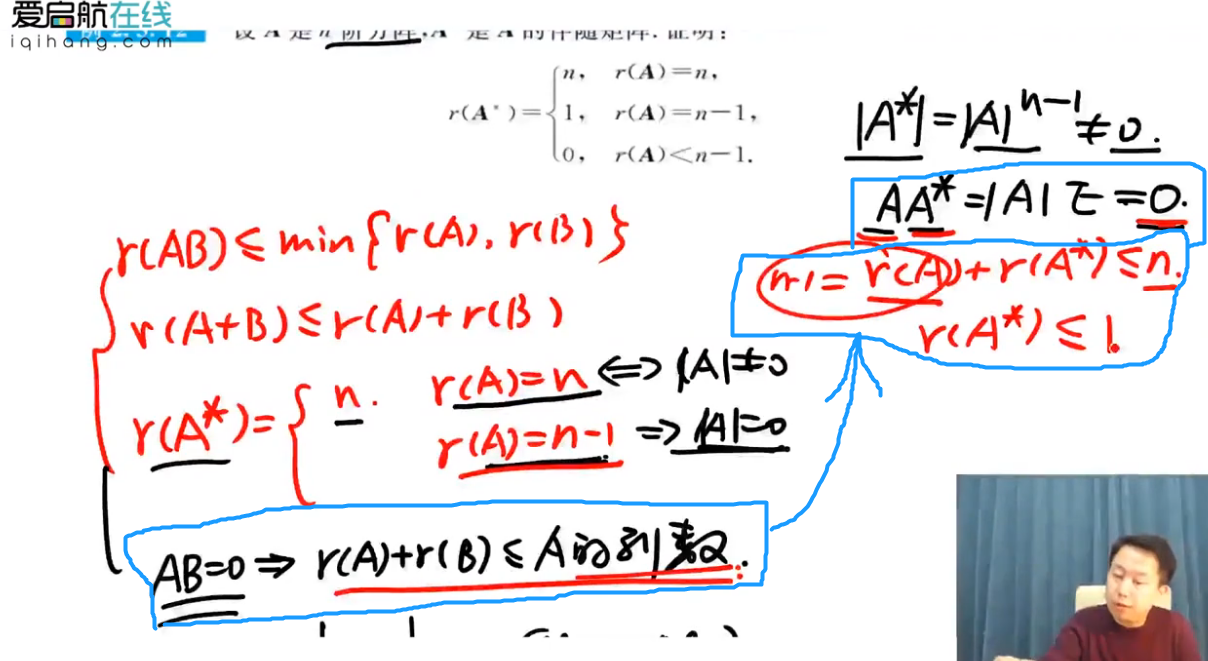 爱启航在线
iqihang.com
设 A 是 n 阶方阵, A* 是 A 的伴随矩阵. 证明:
r(A*)={n, r(A)=n,
1, r(A)=n-1,
0, r(A)<n-1.
|A*|=|A|^{n-1}≠0.
AA*=|A|E=0.
n-1=r(A)+r(A*)≤n.
r(A*)≤1.
r(AB)≤min{r(A), r(B)}
r(A+B)≤r(A)+r(B)
r(A*)={n. r(A)=n⇔|A|≠0
r(A)=n-1⇒|A|=0
AB=0⇒r(A)+r(B)≤A的列数.